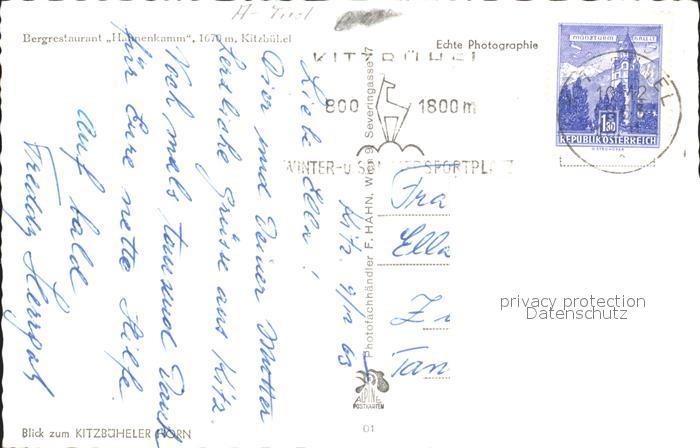 A-Tirol
Bergrestaurant „Hahnenkamm“, 1670 m, Kitzbühel
Echte Photographie
KITZBÜHEL
800 1800 m
WINTER-u SOMMERSPORTPLATZ
MÜNZTURM HALL I.T.
1.80
REPUBLIK ÖSTERREICH
Kitz. 9/12 63
Liebe Ella!
Dir und Deiner Mutter
herzliche Grüsse aus Kitz.
Nochmals tausend Dank
für Eure nette Hilfe.
Auf bald
Freddy
Fra
Ella
Tan
Photofachhändler F. HAHN, Wien 9, Severingasse 7
privacy protection
Datenschutz
ALPINE
POSTKARTEN
Blick zum KITZBÜHELER HORN
01